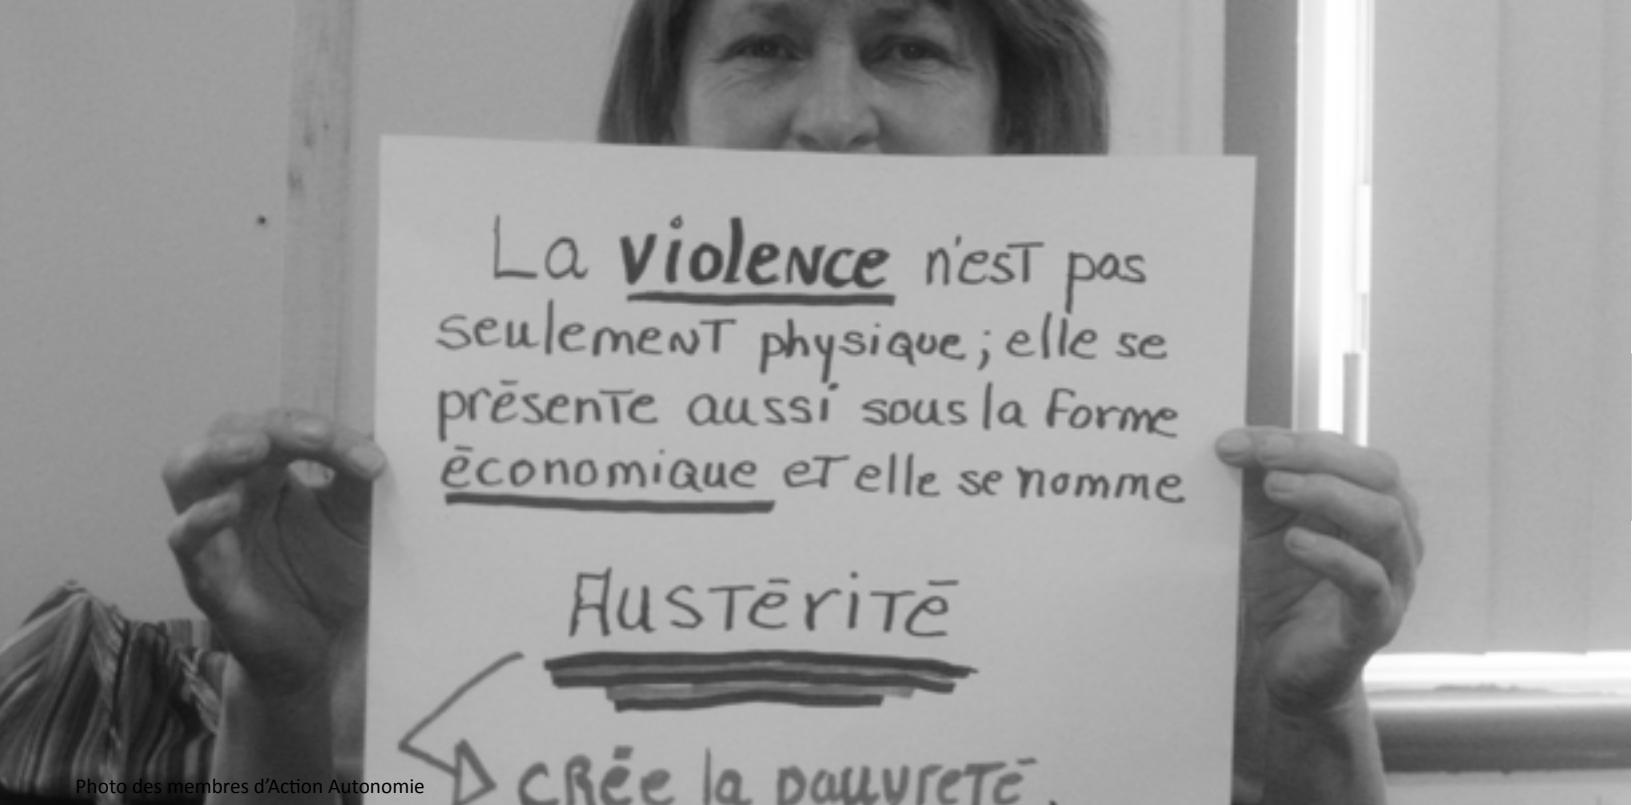 La violence n'est pas
seulement physique; elle se
présente aussi sous la forme
économique et elle se nomme
Austérité
crée la pauvreté.
Photo des membres d'Action Autonomie